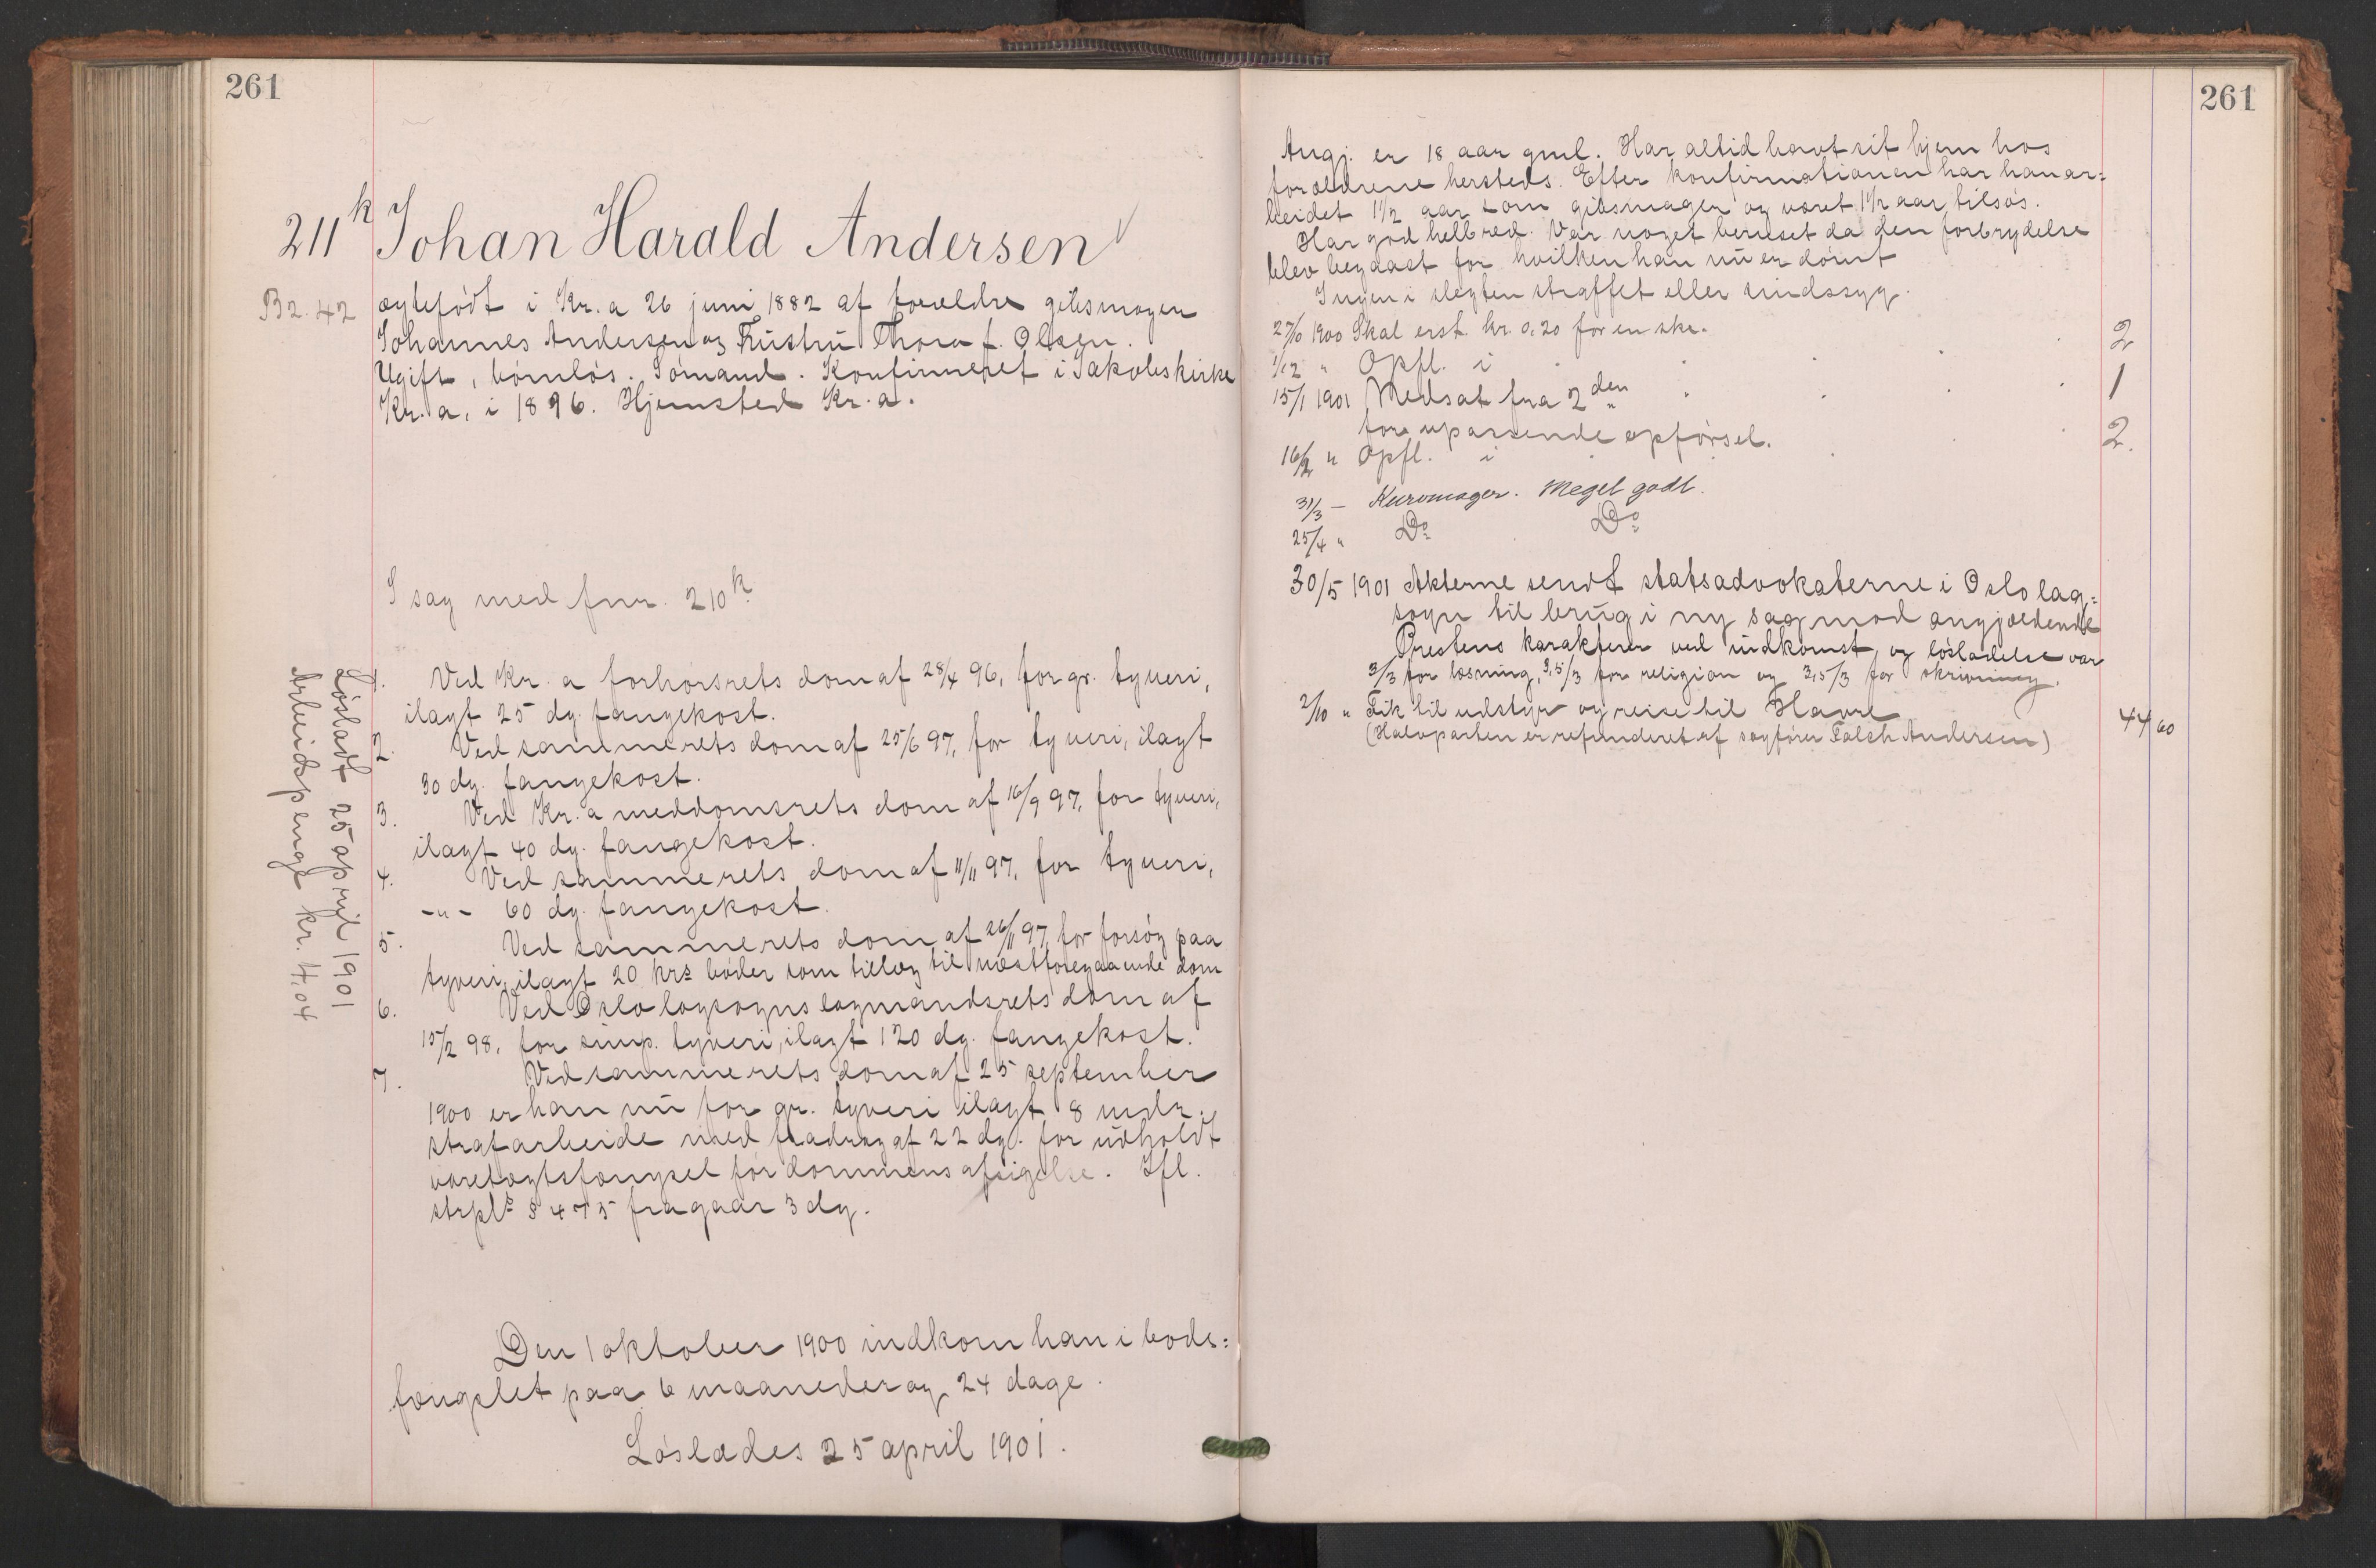 261
211k Johan Harald Andersen
B2. 42
ægtefødt i Kr.a 26 juni 1882 af forældre gibsmager
Johannes Andersen og Hustru Thora f. Olsen.
Ugift, børnløs. Sømand. Konfirmeret i Jakobskirke
Kr.a, i 1896. Hjemsted Kr.a.
I sag med fnr. 210k
1. Ved Kr.a forhørsrets dom af 28/4 96, for gr. tyveri,
ilagt 25 dg. fangekost.
2. Ved sammerets dom af 25/6 97, for tyveri, ilagt
30 dg. fangekost.
3. Ved Kr.a meddomsrets dom af 16/9 97, for tyveri,
ilagt 40 dg. fangekost.
4. Ved sammerets dom af 11/11 97, for tyveri,
-"- 60 dg. fangekost.
5. Ved sammerets dom af 26/11 97, for forsøg paa
tyveri, ilagt 20 krs bøder som tillæg til næstforegaaende dom
6. Ved Oslo lagsogns lagmandsrets dom af
15/2 98, for simp. tyveri, ilagt 120 dg. fangekost.
7. Ved sammerets dom af 25 september
1900 er han nu for gr. tyveri ilagt 8 mdr.
strafarbeide med fradrag af 22 dg. for udholdt
varetægtsfængsel før dommens afsigelse. Ifl.
strpls § 475 fragaar 3 dg.
Løsladt 25 april 1901
Arbeidspenge kr. 4,04
Den 1 oktober 1900 indkom han i bods=
fængslet paa 6 maaneder og 24 dage.
Løslades 25 april 1901.
261
Angj. er 18 aar gml. Har altid havt sit hjem hos
forældrene hersteds. Efter konfirmationen har han ar=
beidet 1 1/2 aar som gibsmager og været 1 1/2 aar tilsøs.
Har god helbred. Var noget beruset da den forbrydelse
blev begaaet for hvilken han nu er dømt
Ingen i slegten straffet eller sindssyg.
27/10 1900 Skal erst. kr. 0,20 for en ske.
1/12 " Opfl. i 2
15/1 1901 Nedsat fra 2den " 1
for upassende opførsel.
16/2 " Opfl. i 2.
31/3 - Kurvmager. Meget godt.
25/4 " Do Do
30/5 1901 Akterne sendt statsadvokaterne i Oslo lag=
sogn til brug i ny sag mod angjældende
Prestens karakterer ved indkomst og løsladelse var
3/3 for læsning, 3,5/3 for religion og 3,5/3 for skrivning.
2/10 " Fik til udstyr og reise til Havre 44 60
(Halvparten er refunderet af sagfører Falch Andersen)